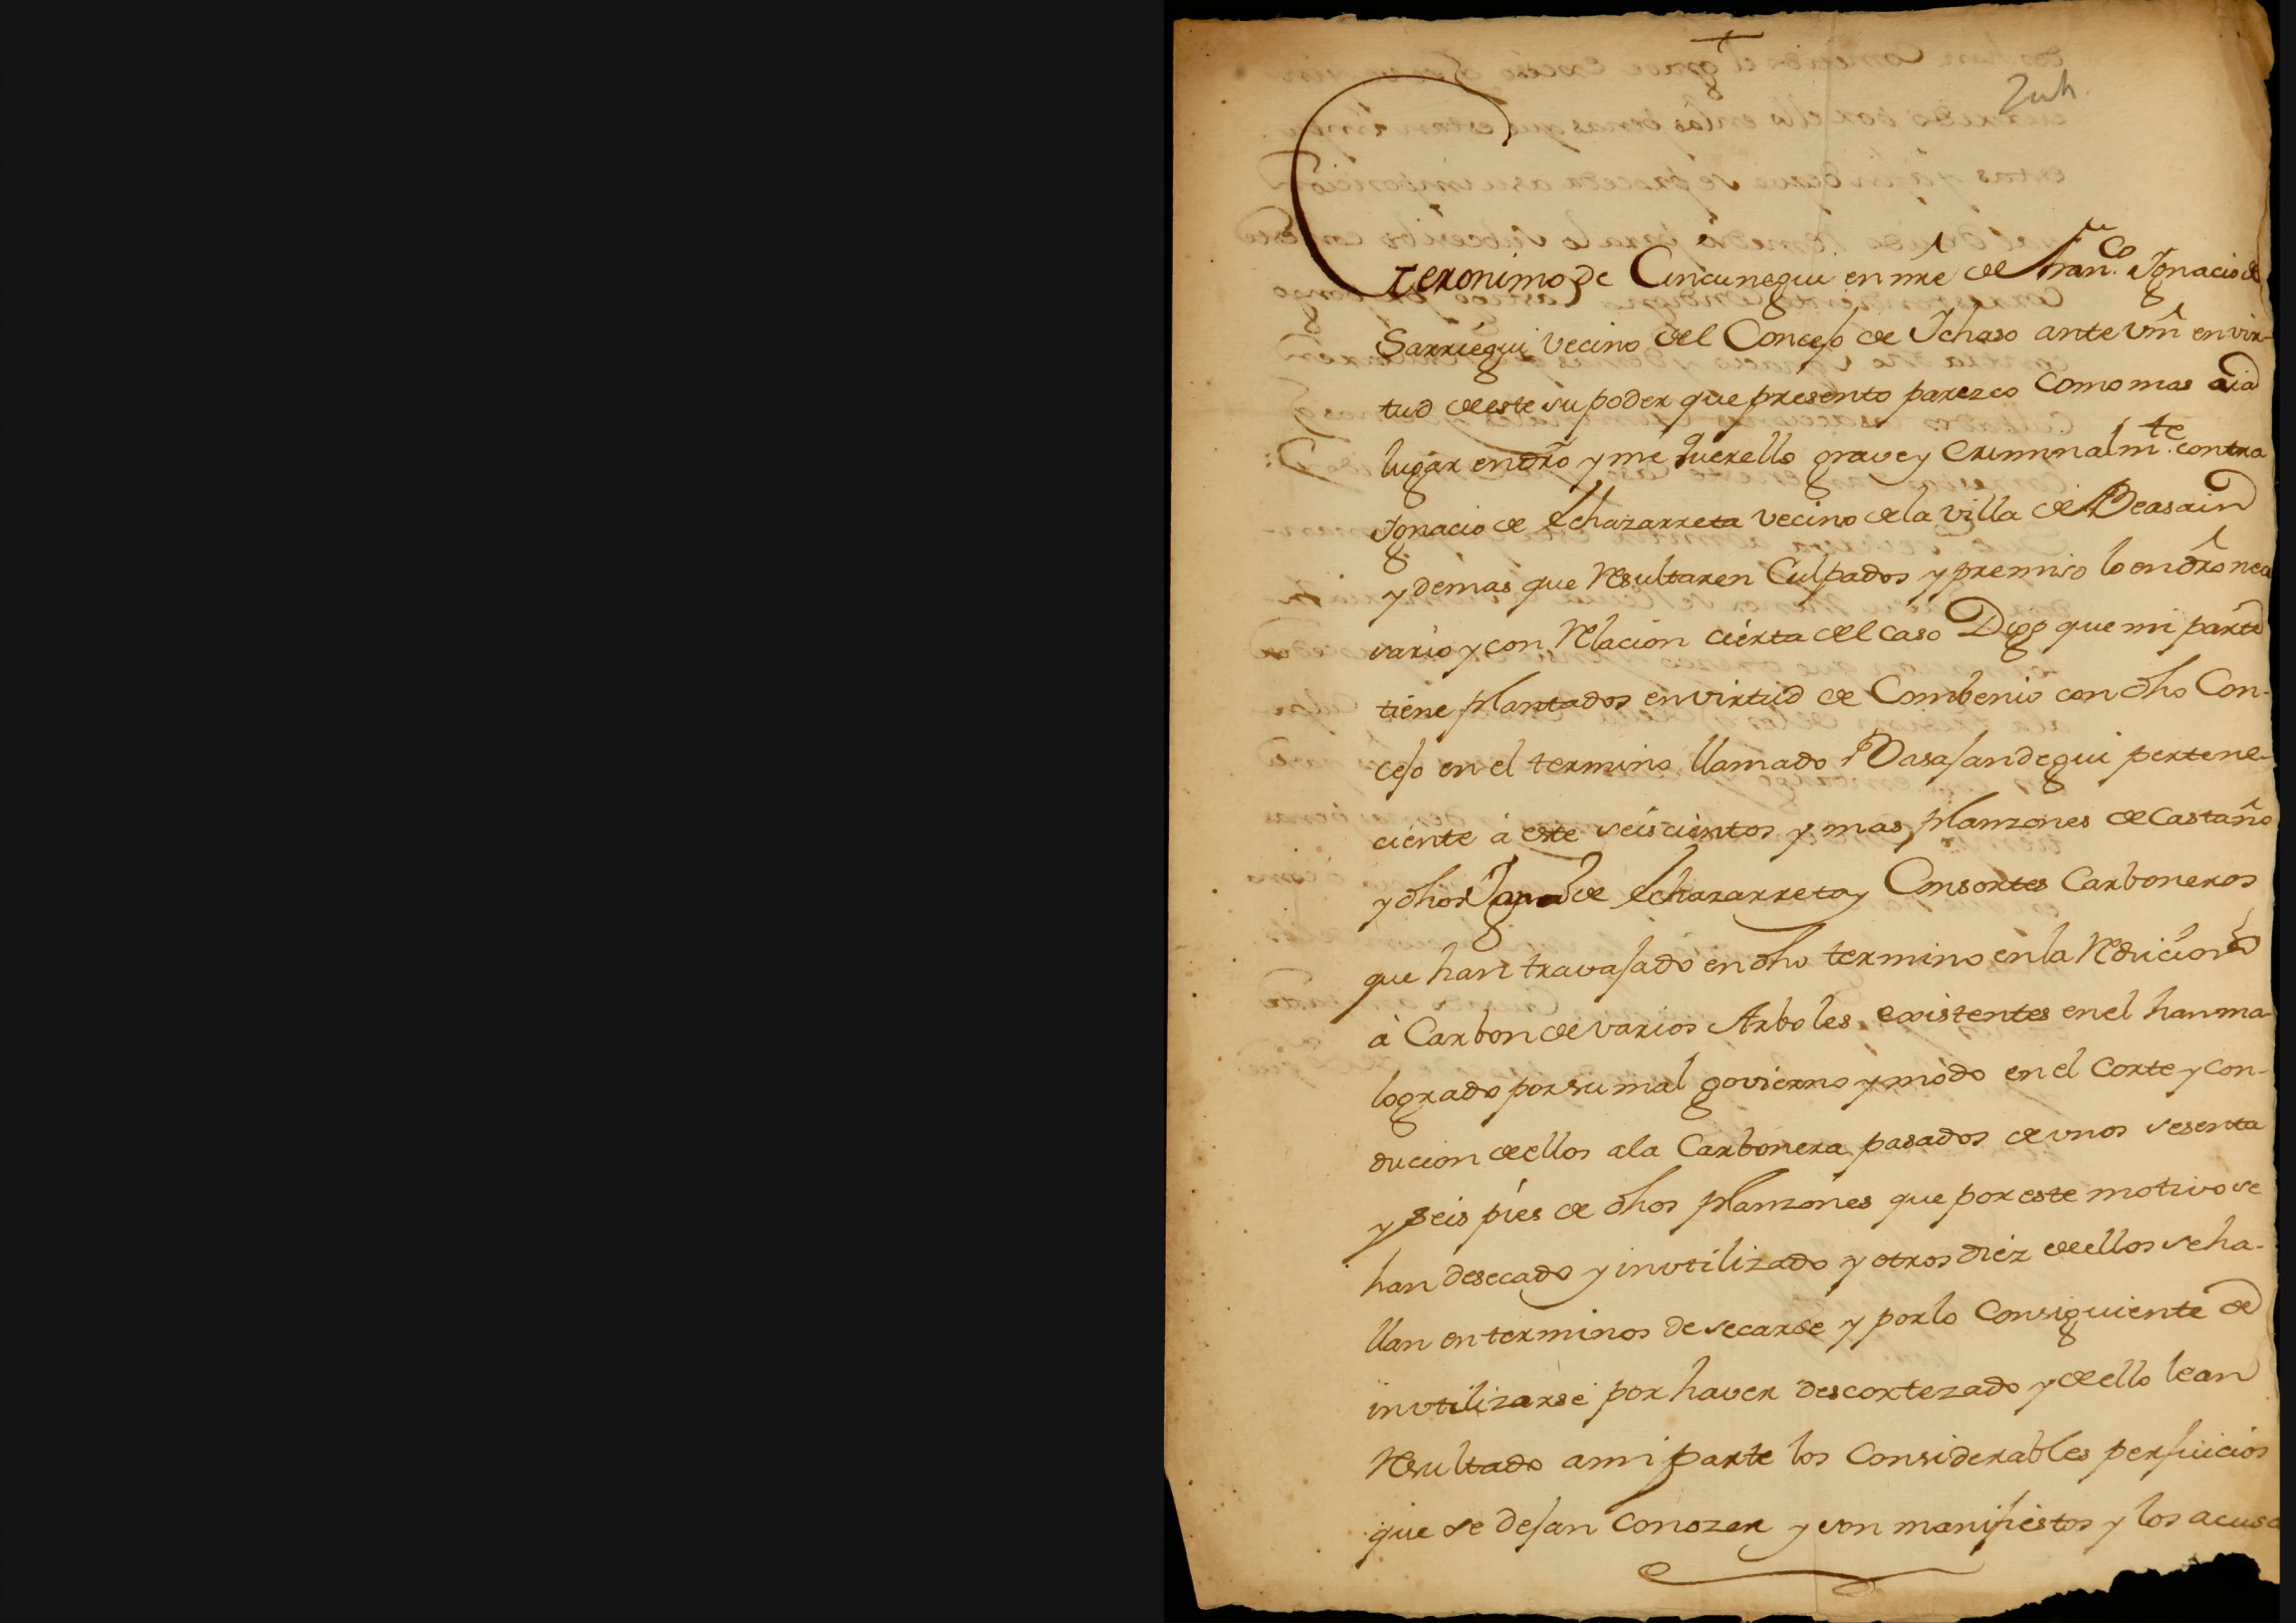 Geronimo de Cincunegui en nre de Franco. Ignacio de
Sarriegui vecino del Concejo de Ichaso ante Vm en vir-
tud de este su poder que presento parezco Como mas aia
lugar en dro y me querello grave y Criminalmte. contra
Ignacio de Echazarreta vecino de la villa de Beasain
y demas que resultaren Culpados y premiso lo en dro nece
sario y con relacion cierta del caso Digo que mi parte
tiene plantados en virtud de Combenio con dho Con-
cejo en el termino llamado Basajandegui pertene-
ciente à este seiscientos y mas planzones de Castaño
y dhos Igno de Echazarreta y Consortes Carboneros
que han travajado en dho termino en la reducion
à Carbon de varios Arboles existentes en el han ma-
logrado por su mal govierno y modo en el Corte y con-
ducion de ellos a la Carbonera pasados de unos sesenta
y seis pies de dhos planzones que por este motivo se
han desecado y inutilizado y otros diez de ellos se ha-
llan en terminos de secarse y por lo Consiguiente de
inutilizarse por haver descortezado y de ello le an
resultado a mi parte los Considerables perjuicios
que se dejan Conozer y son manifiestos y los acusa